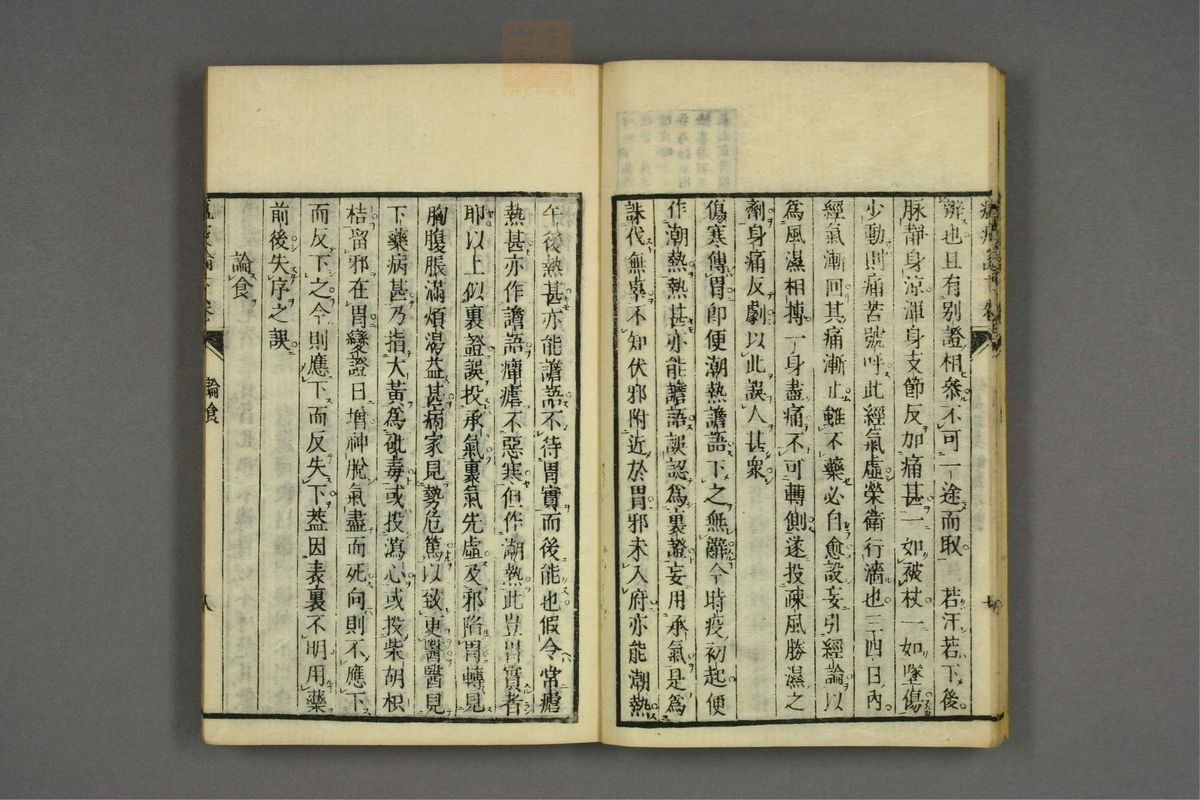 辨也且有别證相參不可一途而取 若汗若下後
脉靜身凉渾身支節反加痛甚一如被杖一如墜傷
少動則痛苦號呼此經氣虛榮衛行濇也三四日內
經氣漸回其痛漸止雖不藥必自愈設妄引經論以
爲風濕相搏一身盡痛不可轉側遂投疎風勝濕之
劑身痛反劇以此誤人甚衆
傷寒傳胃即便潮熱譫語下之無辭今時疫初起便
作潮熱熱甚亦能譫語誤認爲裏證妄用承氣是爲
誅伐無辜不知伏邪附近於胃邪未入府亦能潮熱
午後熱甚亦能譫語不待胃實而後能也假令常瘧
熱甚亦作譫語癉瘧不惡寒但作潮熱此豈胃實者
耶以上似裏證誤投承氣裏氣先虛及邪陷胃轉見
胸腹脹滿煩渴益甚病家見勢危篤以致更醫醫見
下藥病甚乃指大黃爲砒毒或投瀉心或投柴胡枳
桔留邪在胃變證日增神脫氣盡而死向則不應下
而反下之今則應下而反失下葢因表裏不明用藥
前後失序之誤
論食
論食
八